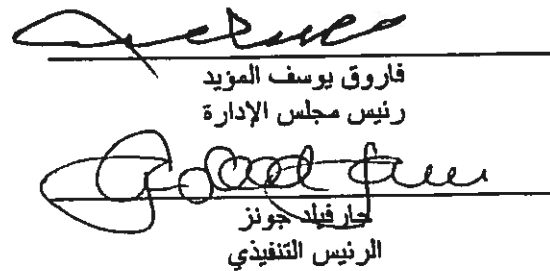 فاروق يوسف المؤيد
رئيس مجلس الإدارة
جارفيلد جونز
الرئيس التنفيذي